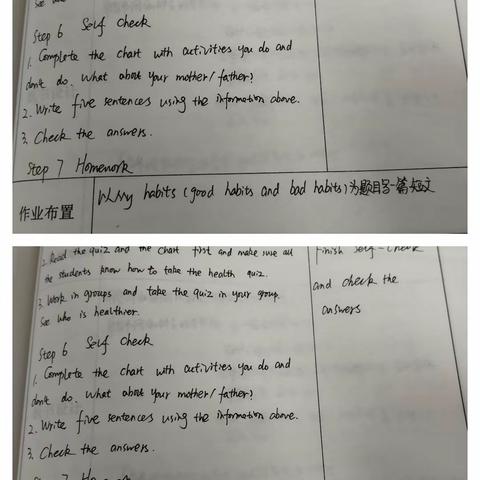 Step 6 Self Check
1. Complete the chart with activities you do and
don't do. What about your mother/father?
2. Write five sentences using the information above.
3. Check the answers.
Step 7 Homework
作业布置
以My habits (good habits and bad habits)为题目写一篇短文
2. Read the quiz and the chart first and make sure all
the students know how to take the health quiz.
3. Work in groups and take the quiz in your group.
See who is healthier.
Finish self-check
and check the
answers
Step 6 Self check
1. Complete the chart with activities you do and
don't do. What about your mother/father?
2. Write five sentences using the information above.
3. Check the answers.